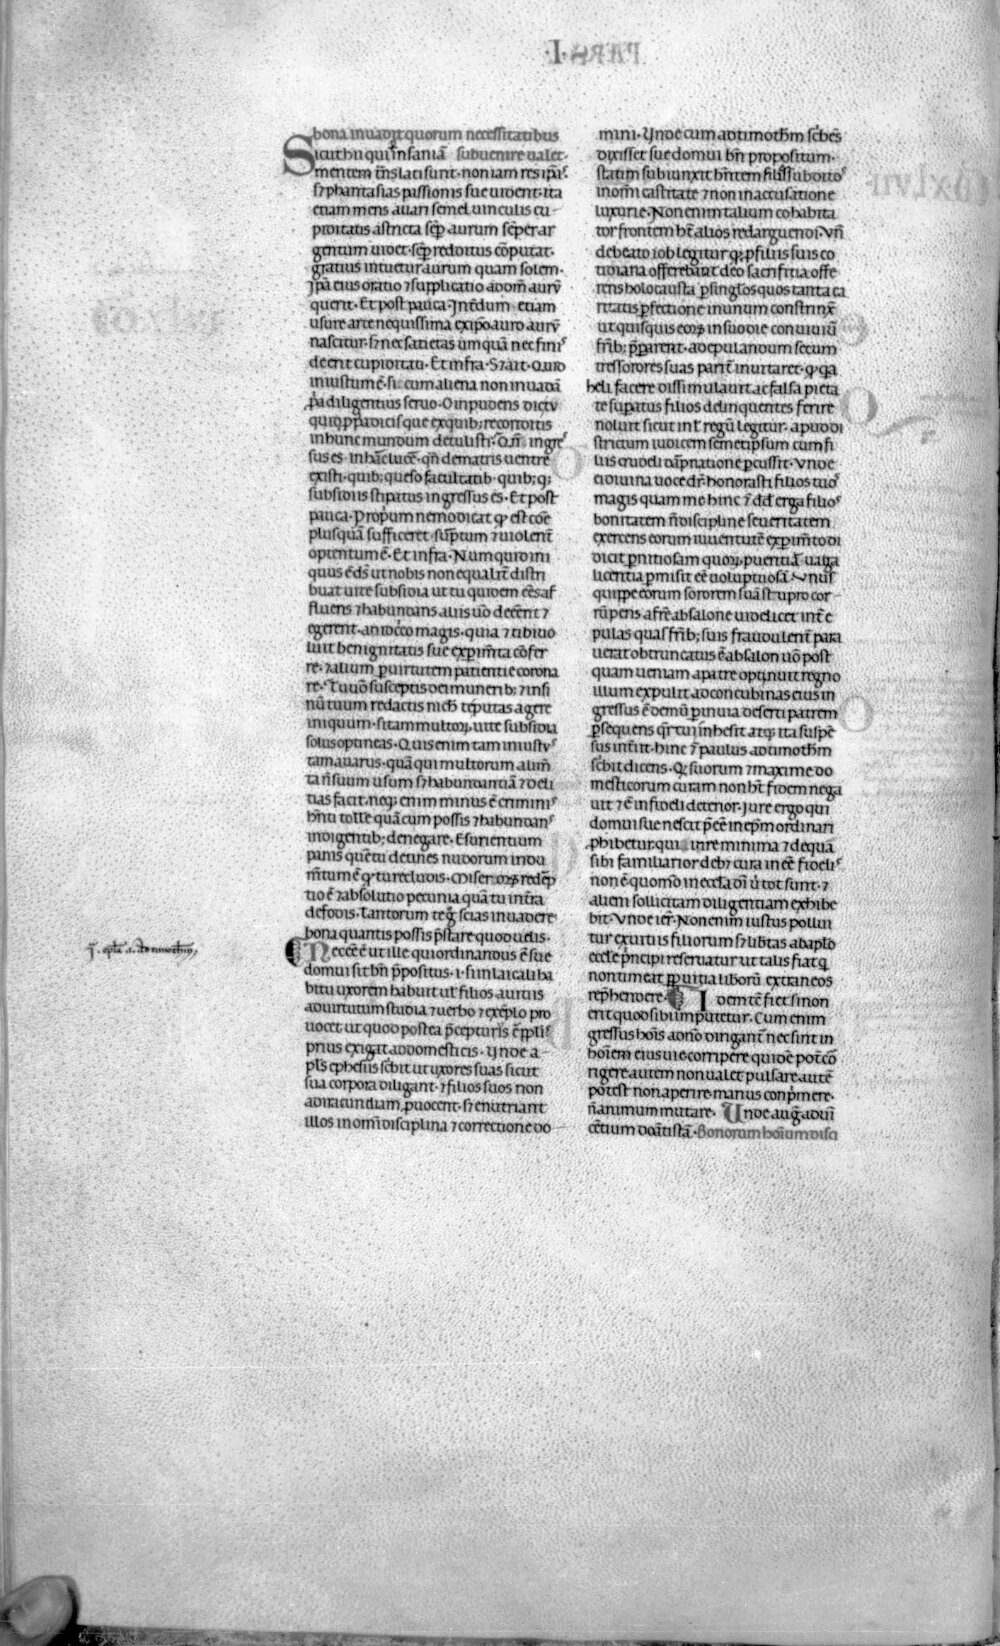 PARS·I·
bona inuadit quorum necessitatibus
Sicut hii qui insaniā subuenire ualet·
mentem trāslati sunt· non iam res ip̄as·
s; phantasias passionis sue uident· ita
etiam mens auari semel uinculis cu-
piditatis astricta sēp aurum sēper ar
gentum uidet· sēp redditus cōputat·
gratius intuetur aurum quam solem·
Ip̄a eius oratio ⁊ supplicatio ad dom̄ aurū
querit· Et post pauca· Int̄dum etiam
usure arte nequissima ex ip̄o auro aurū
nascitur· s; nec satietas umquā nec finis
decrit cupiditati· Et infra· S; ait· Quid
iniustum ē· si cum aliena non inuadā
p̄a diligentius seruo· O inpudens dictū
quid pp̄a dicis que ex quib; reconditis
in hunc mundum detulisti· Qn̄ ingres
sus es· in hāc lucē· qn̄ de matris uentre
existi· quib; queso facultatib· quib; q;
subsidiis stipatus ingressus es· Et post
pauca· Propum nemo dicat qd̄ est cōe
plusquā sufficeret sūptum ⁊ uiolent̄
optentum ē· Et infra· Numquid ini
quus ē ds̄ ut nobis non equalit̄ distri
buat uite subsidia ut tu quidem eēs af
fluens ⁊ habundans aliis uō deeēnt ⁊
egerent· an idcco magis· quia ⁊ tibi uo
luit benignitatis sue experim̄ta cōfer
re· ⁊ alium p uirtutem patientie corona
re· Tu uō susceptis dei munerib; ⁊ in si
nū tuum redactis nich̄ te putas agere
iniquum· si tam multorum uite subsidia
solus optineas· Quis enim tam iniustus
tam auarus· quā qui multorum alim̄
ta n̄ suum usum s; habundantiā ⁊ deli
tias facit· neq; enim minus ē criminis
hn̄ti tolle quā cum possis ⁊ habundans
indigentib; denegare· Esurientium
panis quē tu detines nudorum indu
m̄tum ē qd̄ tu recludis· Miserorum redēp
tio ē ⁊ absolutio pecunia quā tu in t̄ra
defodis· Tantorum te g̊ scias inuadere
bona quantis possis p̄stare quod uelis·
Necēē ē ut ille qui ordinandus ē sue
domui sit bn̄ p̄positus· i· si in laicali ha
bitu uxorem habuit ut filios auitus
ad uirtutum studia ⁊ uerbo ⁊ exēplo pro
uocet· ut quod postea p̄cepturus ē pplis
prius exigat a domesticis· Unde a-
pl̄s ephesiis sc̄bit ut uxores suas sicut
sua corpora diligant· ⁊ filios suos non
ad iracundiam puocent· s; enutriant
illos in om̄i disciplina ⁊ correctione do-
mini· Unde cum ad timoth̄m sc̄bēs
dixisset sue domui bn̄ propositum·
statim subiunxit hn̄tem filios subditos
in om̄i castitate ⁊ non in accusatione
luxurie· Non enim talium cohabita
tor frontem hēt alios redarguendi· Vn̄
de beato iob legitur q; p filiis suis co
tidiana offerebant deo sacrifitia offe
rens holocausta p singlos quos tanta ca
ritatis pfectione in unum constrinx̄
ut quisquis eorum in suo die conuiuiū
fr̄ib; p̄pararent· ad epulandum secum
tres sorores suas parit̄ inuitaret· q;
heli facere dissimulauit ac falsa pieta
te supatus filios delinquentes ferire
noluit sicut in l· regū legitur· apud di
strictum iudicem semetipsum cum fi
liis crudeli dāpnatione pcussit· Vnde
ei diuina uoce dr̄· honorasti filios tuos
magis quam me hinc ⁊ dd̄ erga filios
bonitatem n̄ discipline seueritatem
exercens eorum iuuentutē exprim̄to di
dicit pnitiosam quorum pueritiā uaga
licentia pmisit eē uoluptuosā· Unus
quippe eorum sororem suā stupro cor-
rūpens a fr̄e absalone uidelicet int̄ e
pulas quas fr̄ib; suis fraudulent̄ para
uerat obtruncatus ē absalon uō post
quam ueniam a patre optinuit regno
illum expulit ad concubinas eius in
gressus ē demū p inuia deserti patrem
psequens q̄rcui inhesit atq; ita suspē
sus int̄iit· hinc ⁊ paulus ad timoth̄m
sc̄bit dicens· Qi suorum ⁊ maxime do
mesticorum curam non hēt fidem nega
uit ⁊ ē infideli deterior· Iure ergo qui
domui sue nescit p̄eē in epm̄ ordinari
phibetur· qui in re minima ⁊ de qua
sibi familiarior deb; cura inēē fidelis
non ē· quomō in eccl̄a dī ut tot sunt· ⁊
aliem sollicitam diligentiam exhibe
bit· Vnde ier̄· Non enim iustus pollui
tur ex uitiis filiorum s; libtas ab apl̄o
eccl̄e p̄ncipi reseruatur ut talis fiat q
non timeat pp uitia liberū extraneos
rep̄hendere· Idem tē fiet si non
erit quod sibi imputetur· Cum enim
gressus hois a dn̄o dirigant̄ nec sint in
hoīem eius uie corripere quidē potē cō
rigere autem non ualet pulsare autē
potest non aperire manus conp̄mere·
n̄ animum mutare· Unde aug̊ adui
cētium dōatistā· Bonorum hoīum disci